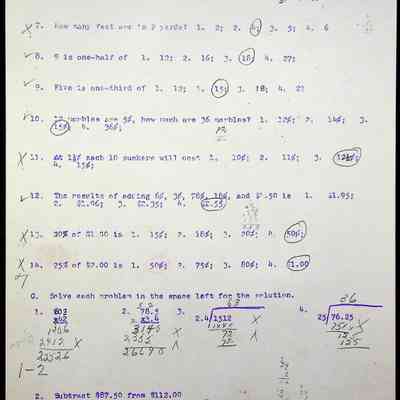 7. How many feet are in 2 yards? 1. 2; 2. 4; 3. 5; 4. 6
8. 9 is one-half of 1. 12; 2. 16; 3. 18; 4. 27;
9. Five is one-third of 1. 12; 2. 15; 3. 18; 4. 22
10. 12 marbles are 5¢, how much are 36 marbles? 1. 12¢; 2. 14¢; 3.
15¢ 4. 36¢;
11. At 1¼¢ each 10 suckers will cost 1. 10¢; 2. 11¢; 3. 12½¢;
4. 15¢;
12. The results of adding 6¢, 3¢, 78¢, 18¢, and $1.50 is 1. $1.95;
2. $2.06; 3. $2.35; 4. $2.55
13. 20% of $1.00 is 1. 15¢; 2. 18¢; 3. 20¢; 4. 50¢;
14. 25% of $2.00 is 1. 50¢; 2. 75¢; 3. 80¢; 4. $1.00
C. Solve each problem in the space left for the solution.
1. 2. 78.9 3. 2.4 1512 63 4. 25 76.25 36
x3.4
22526 26690
1-2
2. Subtract $87.50 from $112.00